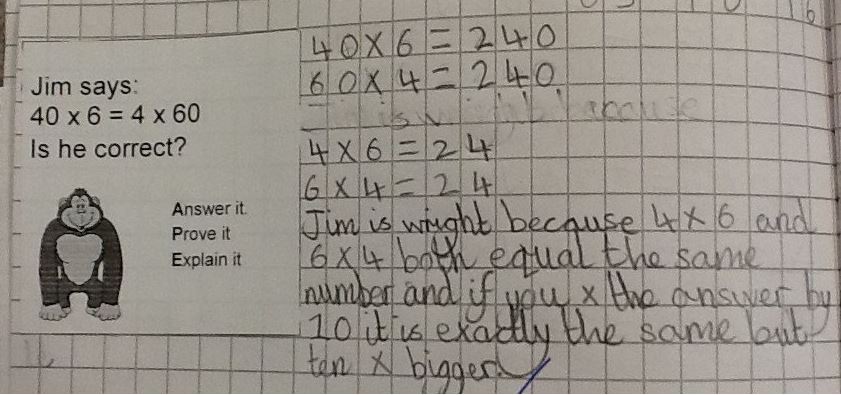 Jim says:
40 x 6 = 4 x 60
Is he correct?
Answer it
Prove it
Explain it
40 x 6 = 240
60 x 4 = 240
4 x 6 = 24
6 x 4 = 24
Jim is wright because 4 x 6 and
6 x 4 both equal the same
number and if you x the answer by
10 it is exactly the same but
ten x bigger.